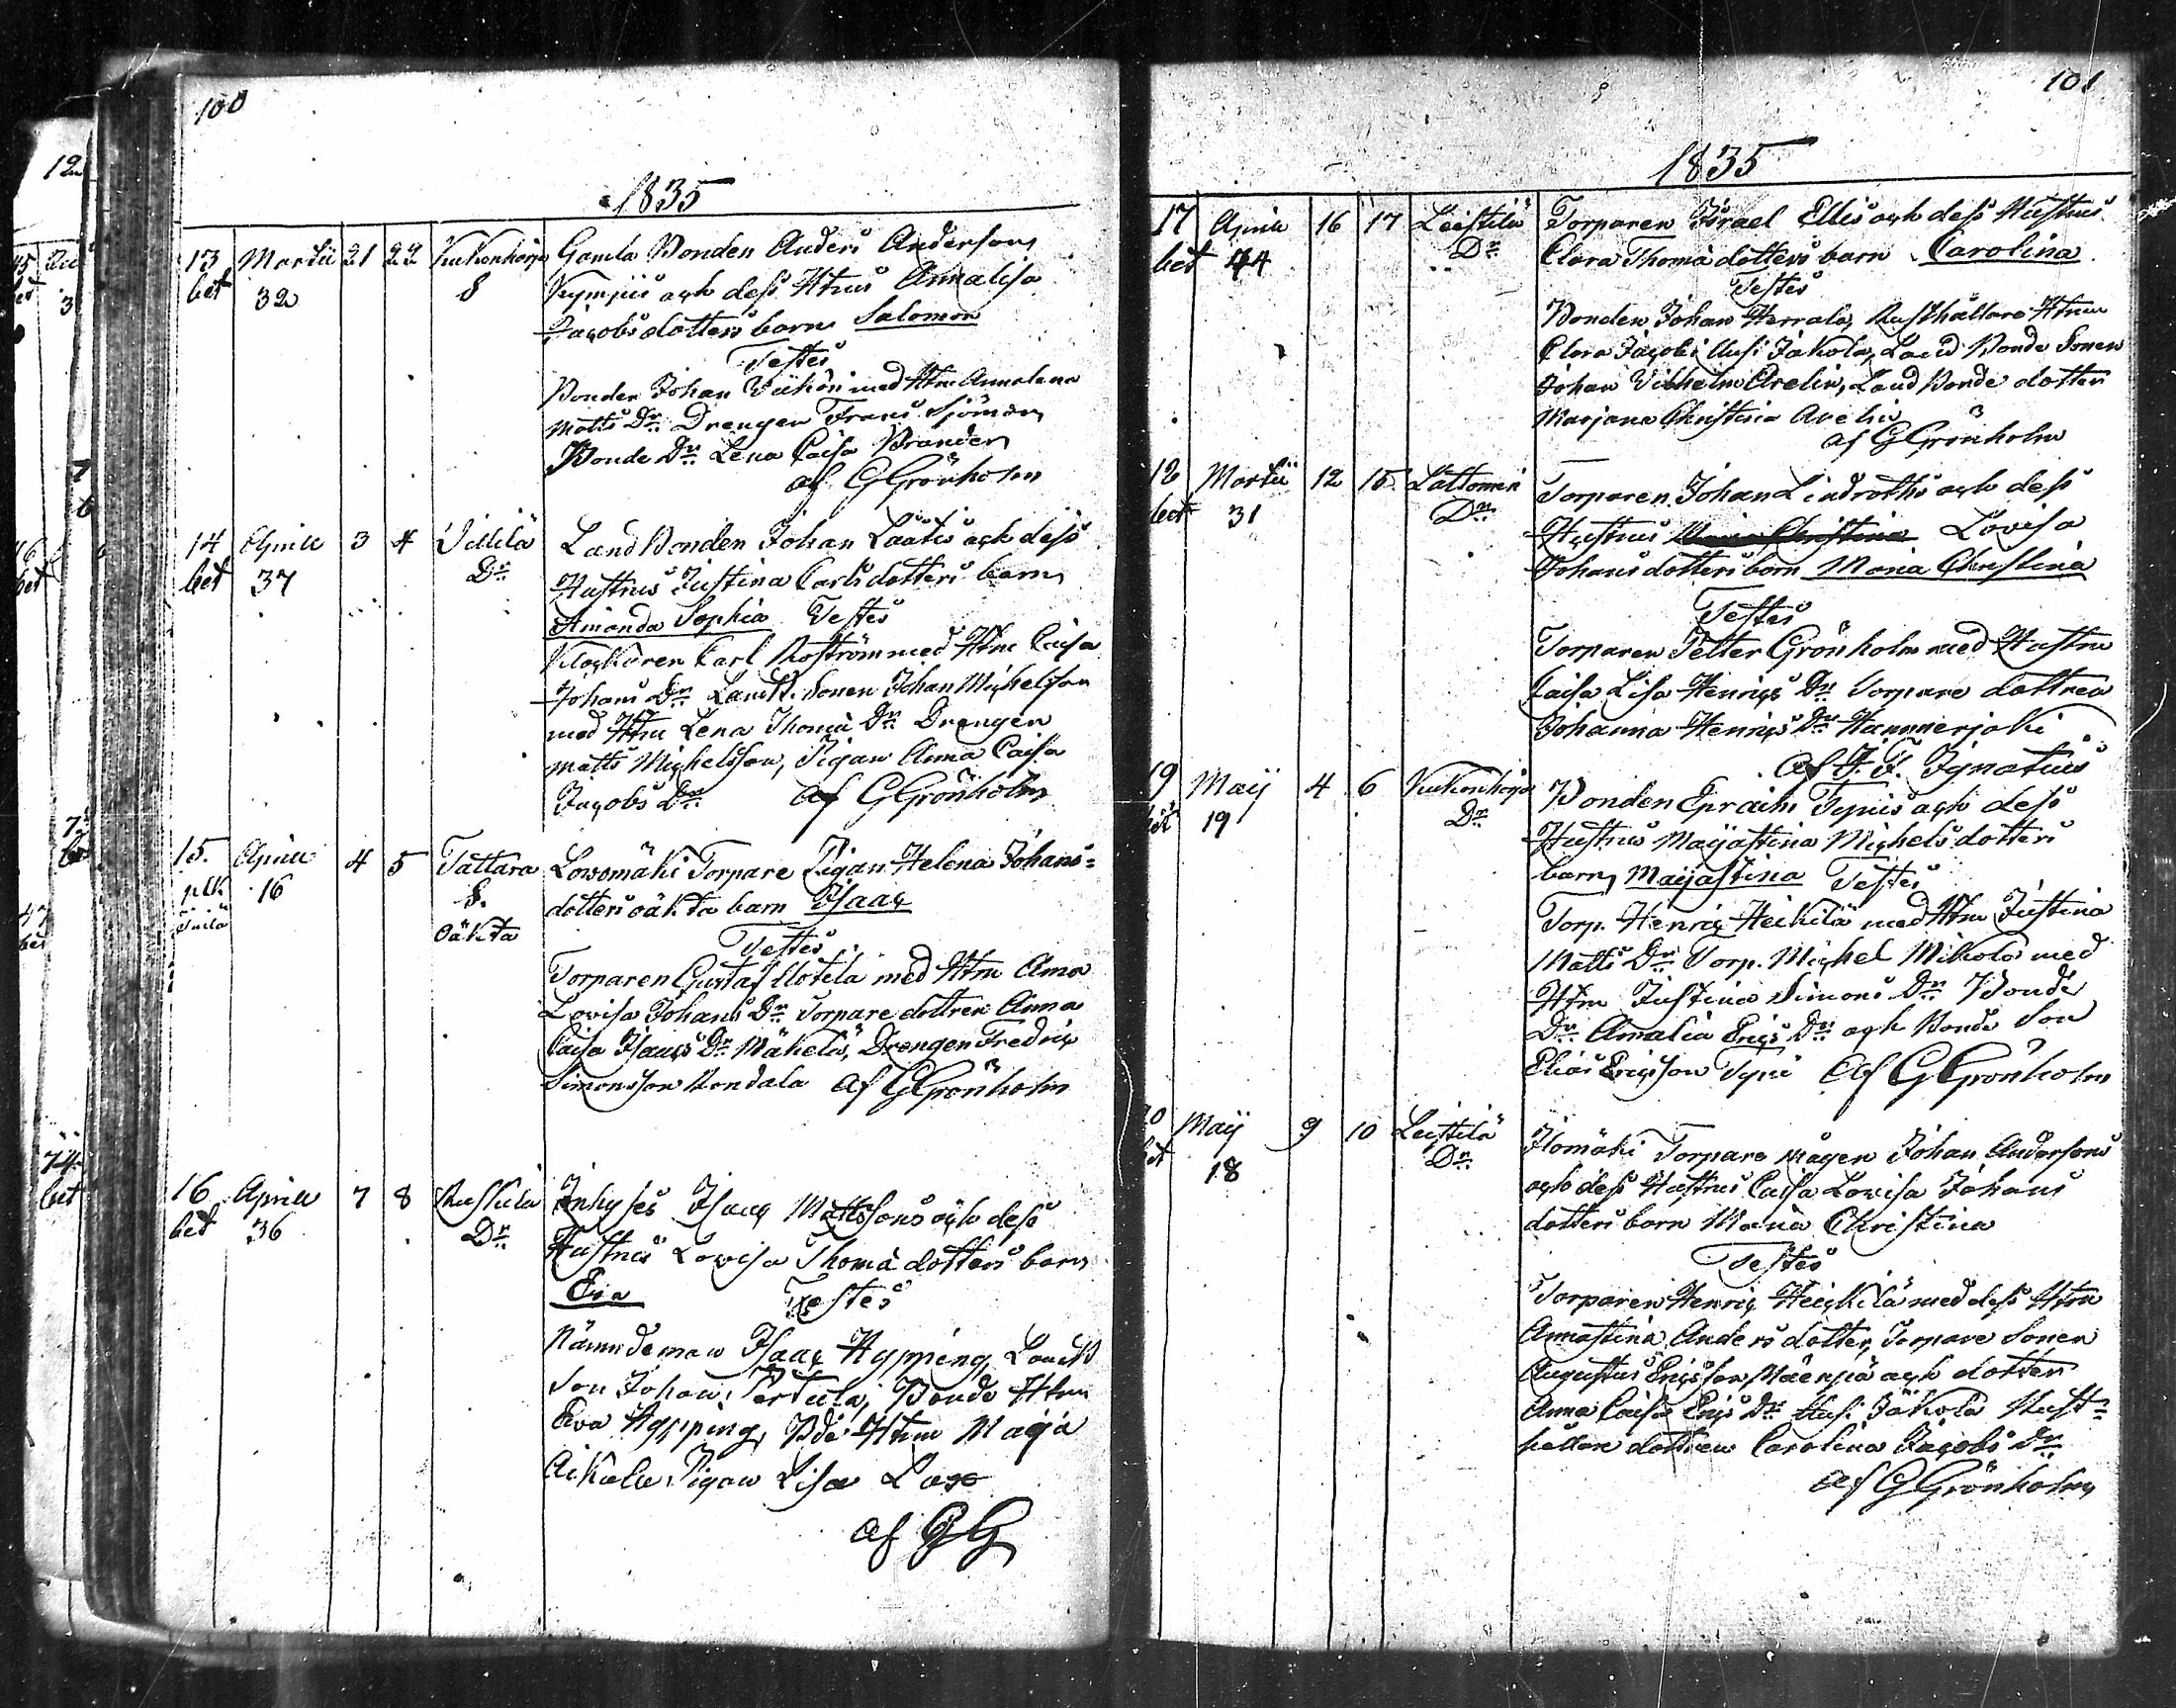 100
1835
13 Martii 21 22 Kukonharja Gamla Bonden Anders Andersons
bet 32 S Kympis och dess Hustrus Annalisa
Jacobsdotters barn Salomon
Testes
Bonden Johan med Htru Annalena
Matts Dr Drengen Frans Sjöman
Bonde Dr Lena Caisa Brander
af G Grönholm
14 Aprill 3 4 Villilä Land Bonden Johan Laatis och dess
bet 37 Dr Hustrus Justina Carls dotters barn
Amanda Sophia Testes
Klockaren Carl med Htru Caisa
Johans Dr Landb. Sonen Johan Michelson
med Htru Lena Thomæ Dr Drengen
Matts Michelsson, Pigan Anna Caisa
Jacobs Dr af G Grönholm
15. Aprill 4 5 Tattara Lovomäki Torpare Pigan Helena Johans=
16 S. dotters oäkta barn Isaac
oäkta
Testes
Torparen Gustaf Uotila med Htru Anna
Lovisa Johans Dr Torpare dottren Anna
Caisa Isaacs Dr Mäkelä, Drengen Fredric
Simonsson af G Grönholm
16 Aprill 7 8 Inhyses Isaac Mattssons och dess
bet 36 Dr Hustrus Lovisa Thomæ dotters barn
Eva Testes
Nämndeman Isaac Hypping, Landb
Son Johan Pertula, Bonde Htru
Eva Hypping, Bde Htru Maja
Pigan Lisa
af GG
101
1835
17 Aprill 16 17 Leistilä Torparen Israel Ellis och dess Hustrus
bet 44 Dr Clara Thomæ dotters barn Carolina
Testes
Bonden Johan Herrala, Rusthållare Htrun
Clara Jacobs Uusi Jakola, Land Bonde Sonen
Johan Vilhelm Arelin, Land Bonde dotter
Marjana Christina Arelin
af G Grönholm
18 Martii 12 15. Lattomeri Torparen Johan Lindroths och dess
bet 31 Dr Hustrus Maria Christina Lovisa
Johans dotters barn Maria Christina
Testes
Torparen Petter Grönholm med Hustru
Caisa Lisa Henrics Dr Torpare dottren
Johanna Henrics Dr Hammarjoki
af J. F. Ignatius
19 Maij 4 6 Kukonharja Bonden Epraim Typis och dess
bet 19 Dr Hustrus Maijastina Michels dotters
barn Maijastina Testes
Torp. Henric Heikilä med Htru Justina
Matts Dr Torp. Michel Mikola med
Htru Justina Simons Dr Bonde
Dr Amalia Erics Dr och Bonde Son
Elias Ericsson Typi af G Grönholm
20 Maij 9 10 Leistilä Ilomäki Torpare mågen Johan Andersons
bet 18 Dr och dess Hustrus Caisa Lovisa Johans
dotters barn Maria Christina
Testes
Torparen Henric Heickilä med dess Htru
Annastina Anders dotter, Torpare Sonen
Augustus Ericsson Mäenpä och dotter
Anna Caisa Erics Dr Uusi Jäkola Rust=
hållare dottren Carolina Jacobs Dr
af G Grönholm